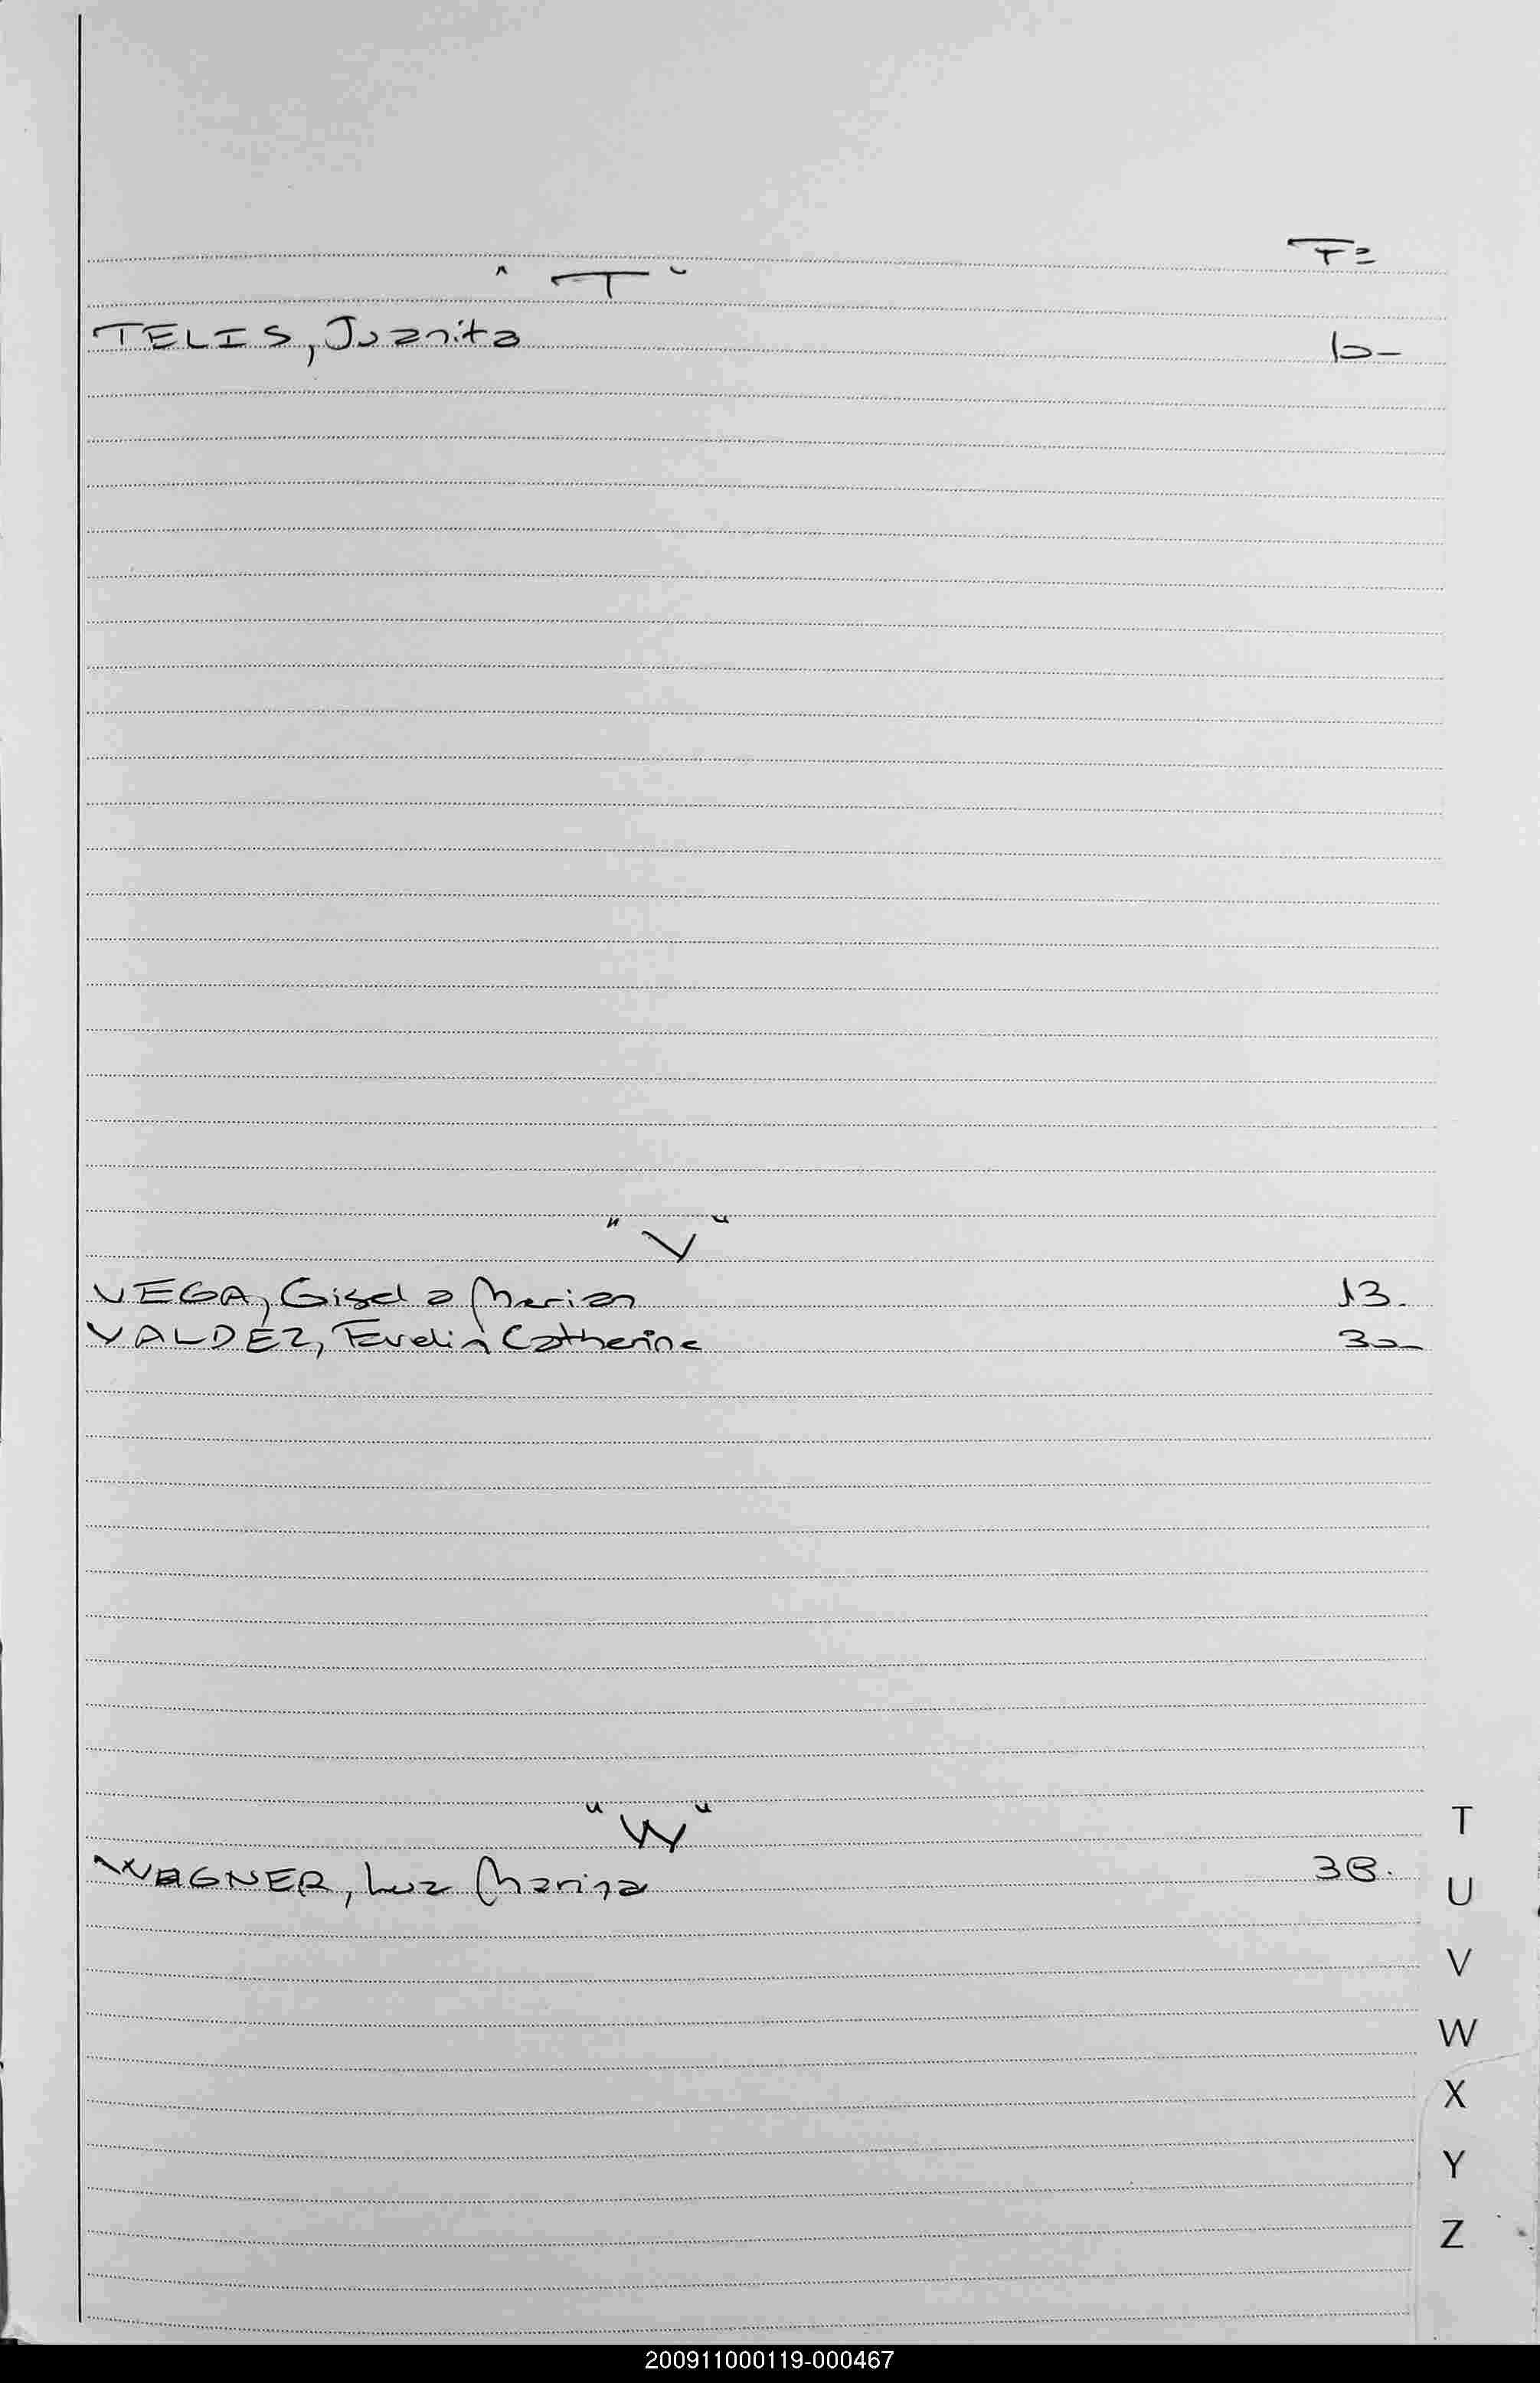 Fº
"T"
TELIS, Juanita 10-
"V"
VEGA, Gisela Marian 13.
VALDEZ, Evelin Catherine 30-
"W"
WAGNER, Luz Marina 38.
T
U
V
W
X
Y
Z
200911000119-000467